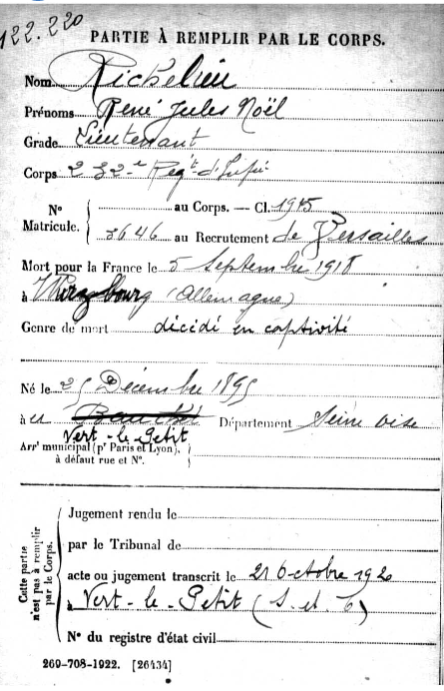 122.220
PARTIE À REMPLIR PAR LE CORPS.
Nom Richelieu
Prénoms René Jules Noël
Grade Lieutenant
Corps 232e Régt d'Infie
No au Corps. — Cl. 1915
Matricule. 3646 au Recrutement de Versailles
Mort pour la France le 5 Septembre 1918
à Wurzbourg (Allemagne)
Genre de mort décédé en captivité
Né le 25 Décembre 1895
à Département Seine Oise
Vert-le-Petit
Arrt municipal (pr Paris et Lyon),
à défaut rue et No.
Cette partie
n'est pas à remplir
par le Corps.
Jugement rendu le
par le Tribunal de
acte ou jugement transcrit le 21 Octobre 1920
à Vert-le-Petit (S. et O)
No du registre d'état civil
260-708-1922. [26434]